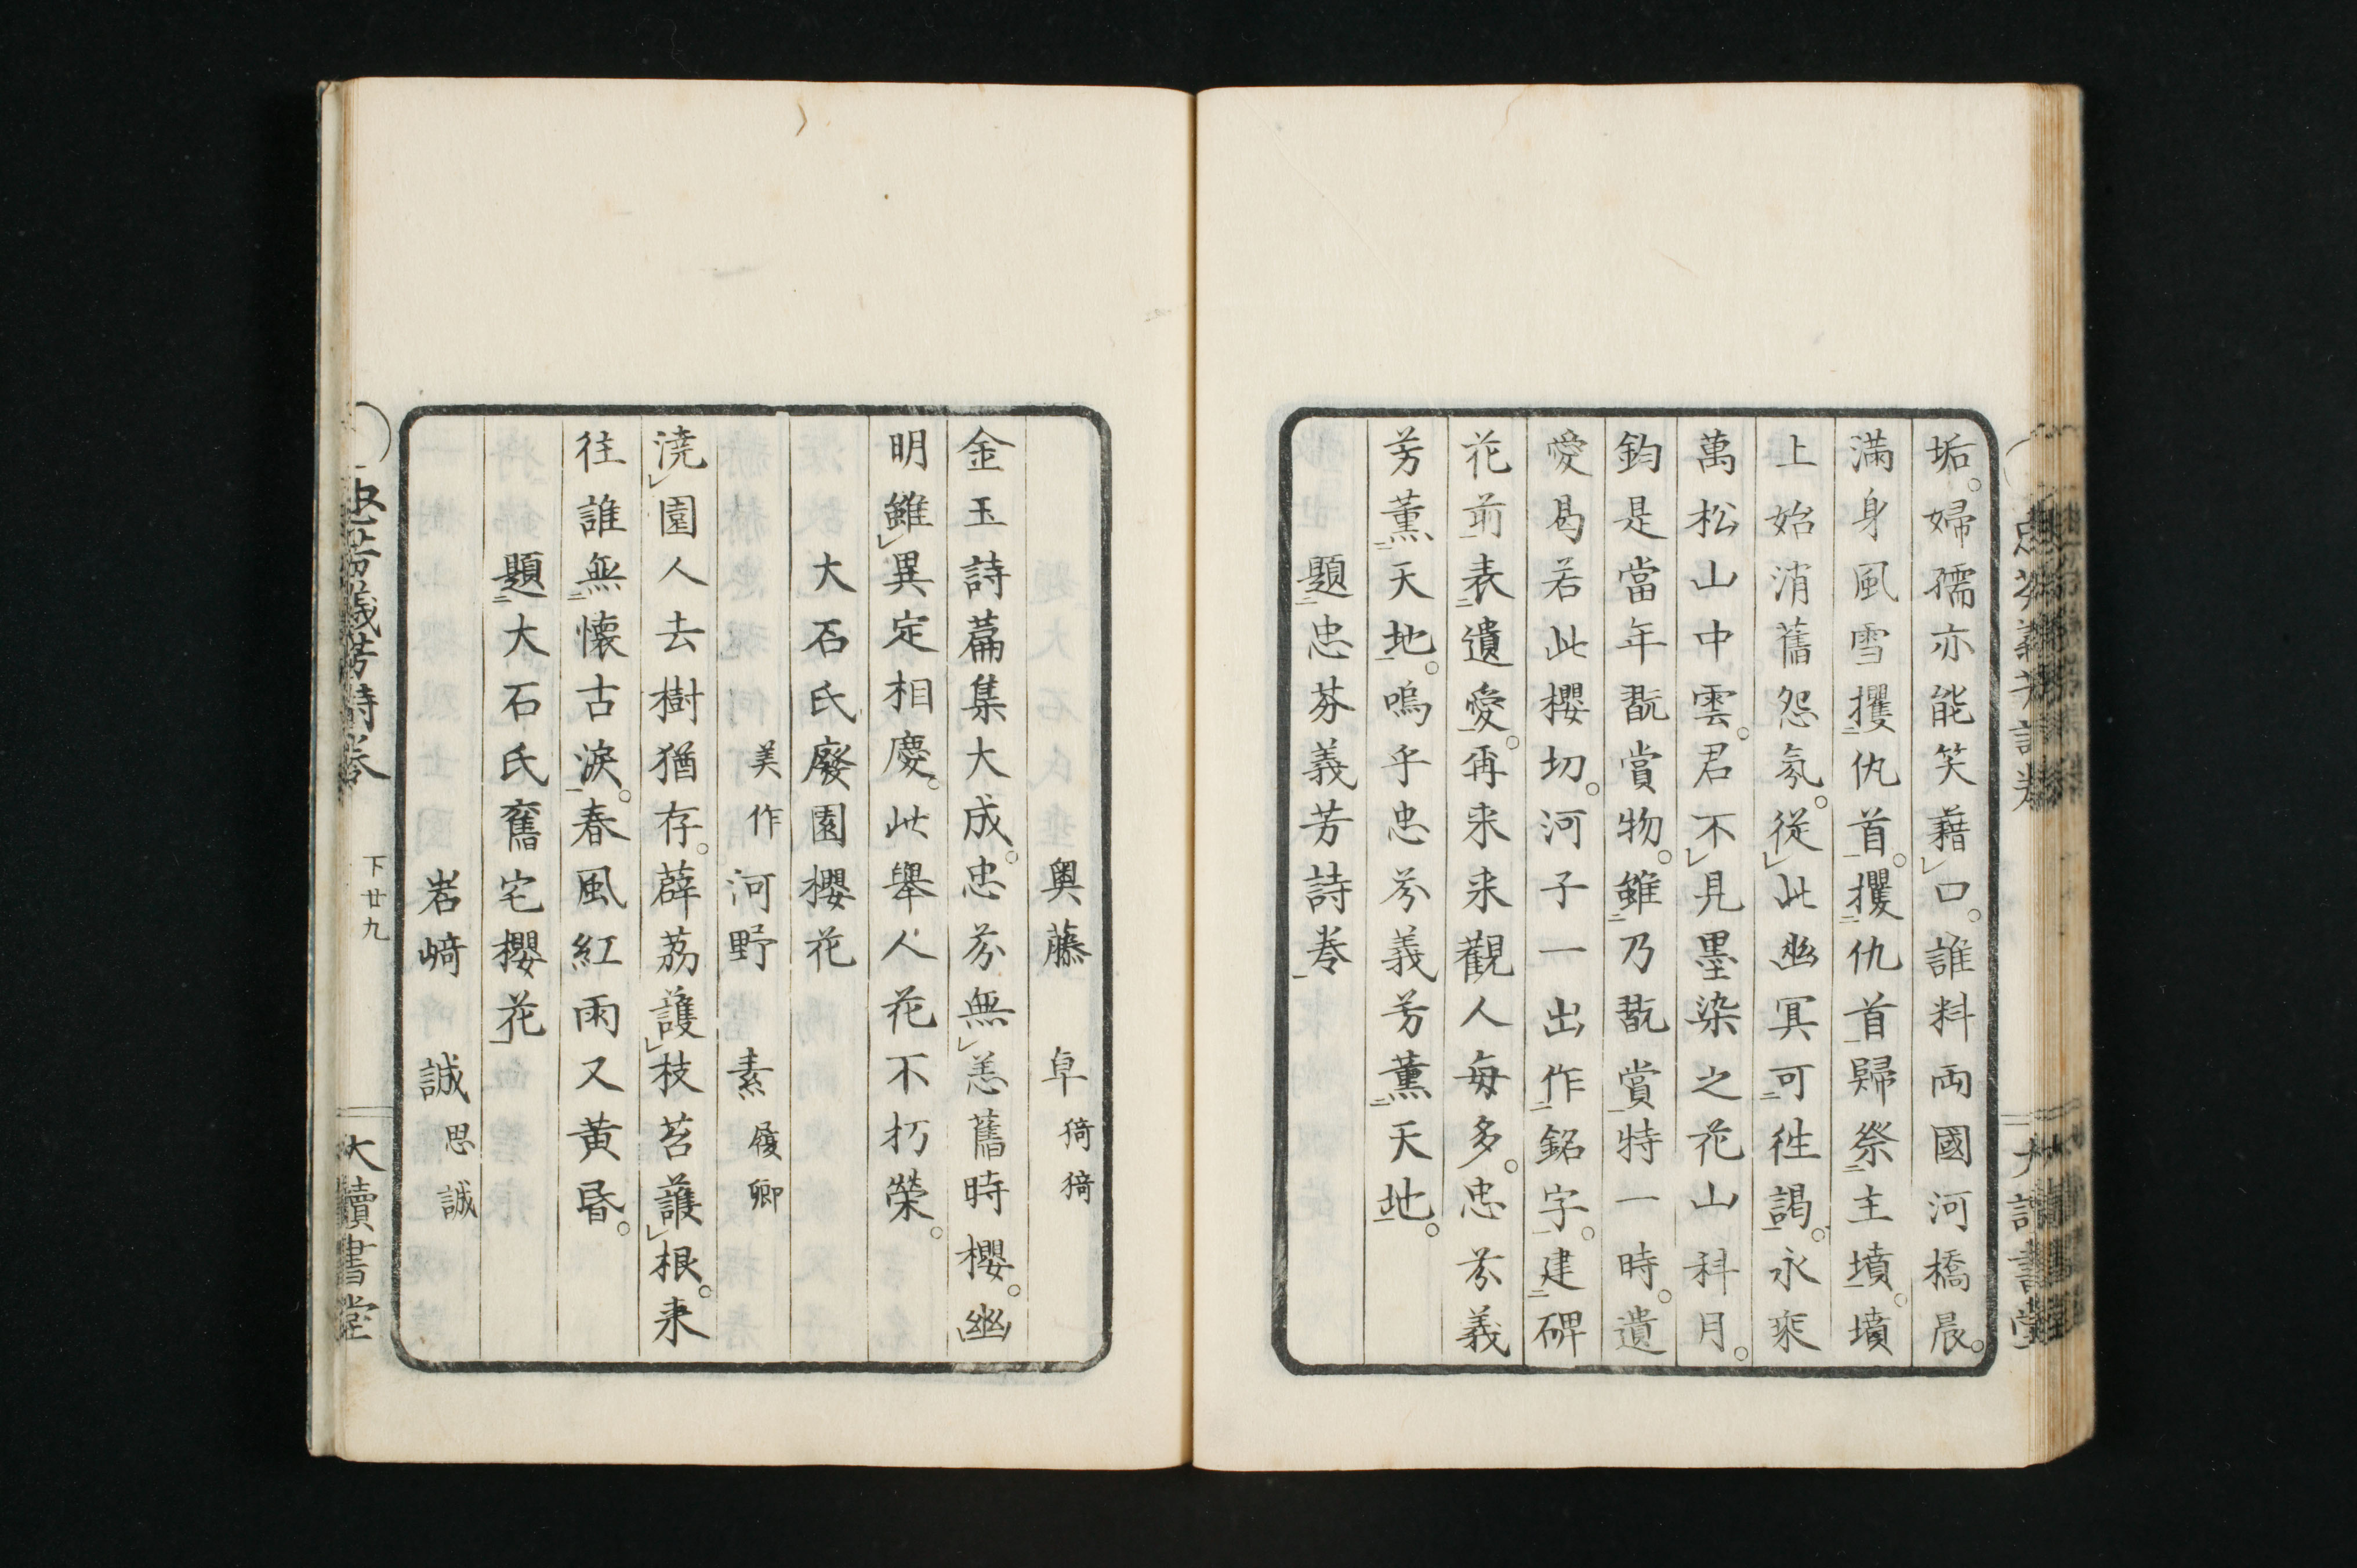 垢。婦孺亦能笑藉口。誰料両國河橋晨。
滿身風雪攫仇首。攫仇首歸祭主墳。墳
上始消舊怨氛。從此幽冥可徃謁。永乘
萬松山中雲。君不見墨染之花山科月。
鈞是當年翫賞物。雖乃翫賞特一時。遺
愛曷若此櫻切。河子一出作銘字。建碑
花前表遺愛。再来来觀人每多。忠芬義
芳薰天地。嗚乎忠芬義芳薰天地。
題忠芬義芳詩卷
奥藤 卓 猗猗
金玉詩篇集大成。忠芬無恙舊時櫻。幽
明雖異定相慶。此舉人花不朽榮。
大石氏廢園櫻花
美作 河野 素 履卿
澆園人去樹猶存。薜荔護枝苔護根。来
往誰無懷古淚。春風紅雨又黄昏。
題大石氏舊宅櫻花
岩﨑 誠 思誠
忠芬義芳詩卷 下廿九 大讀書堂